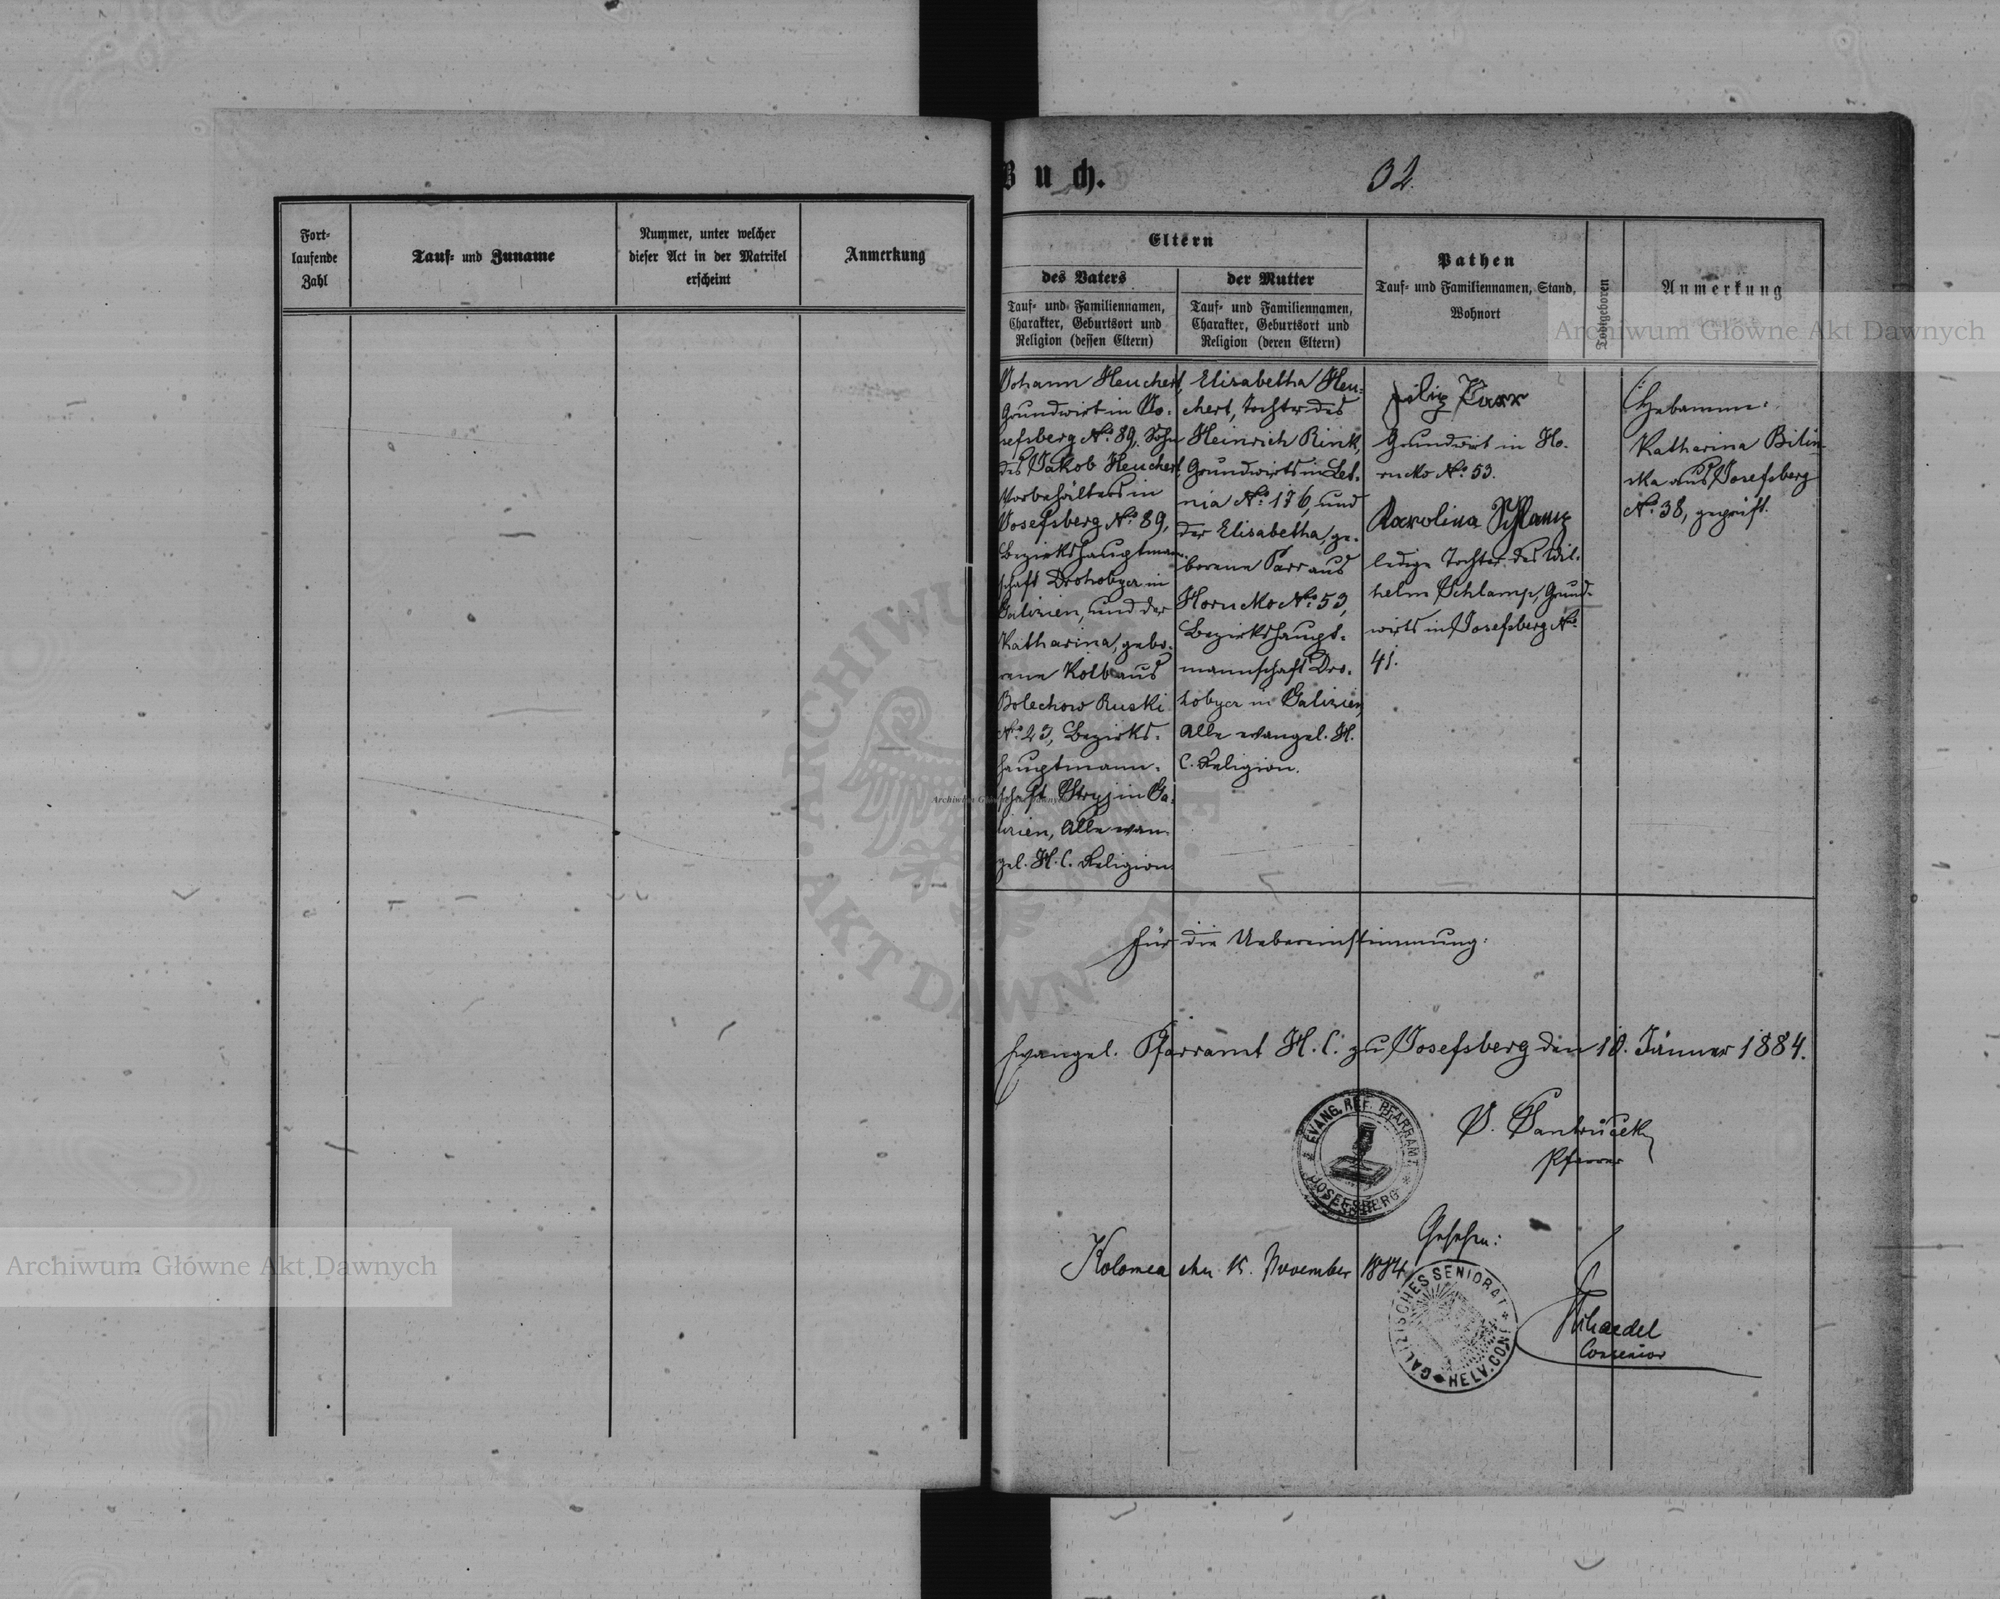 Fort-
laufende
Zahl
Tauf- und Zuname
Nummer, unter welcher
dieser Act in der Matrikel
erscheint
Anmerkung
Buch.
32.
Eltern
des Vaters
Tauf- und Familiennamen,
Charakter, Geburtsort und
Religion (dessen Eltern)
der Mutter
Tauf- und Familiennamen,
Charakter, Geburtsort und
Religion (deren Eltern)
Pathen
Tauf- und Familiennamen, Stand,
Wohnort
Todtgeboren
Anmerkung
Johann Heuchert,
Grundwirt in Jo-
sefsberg No. 89, Sohn
des Jakob Heuchert
Vorbehälters in
Josefsberg No. 89,
Bezirkshauptman-
schaft Drohobycz in
Galizien, und der
Katharina, gebo-
rene Kolb aus
Bolechow Ruski
No. 23, Bezirks-
hauptmann-
schaft Stryj in Ga-
lizien, Alle evan-
gel. H. C. Religion.
Elisabetha Heu-
chert, Tochter des
Heinrich Rink,
Grundwirts in Let-
nia No. 176, und
der Elisabetha, ge-
borene Parr aus
Horucko No. 53,
Bezirkshaupt-
mannschaft Dro-
hobycz in Galizien,
Alle evangel. H.
C. Religion.
Filip Parr
Grundwirt in Ho-
rucko No. 53.
Karolina Schlamp
ledige Tochter des Wil-
helm Schlamp, Grund-
wirts in Josefsberg No.
41.
Hebamme:
Katharina Bilin-
ska aus Josefsberg
No. 38, geprüft.
Für die Uebereinstimmung:
Evangel. Pfarramt H. C. zu Josefsberg den 10. Jänner 1884.
EVANG. REF. PFARRAMT
JOSEFSBERG
Pfarrer
Gesehen:
Kolomea den 15. November 1884
GALIZISCHES SENIORAT
HELV. CONF.
Consenior
Archiwum Główne Akt Dawnych
Archiwum Główne Akt Dawnych
Archiwum Główne Akt Dawnych
ARCHIWUM GŁÓWNE AKT DAWNYCH